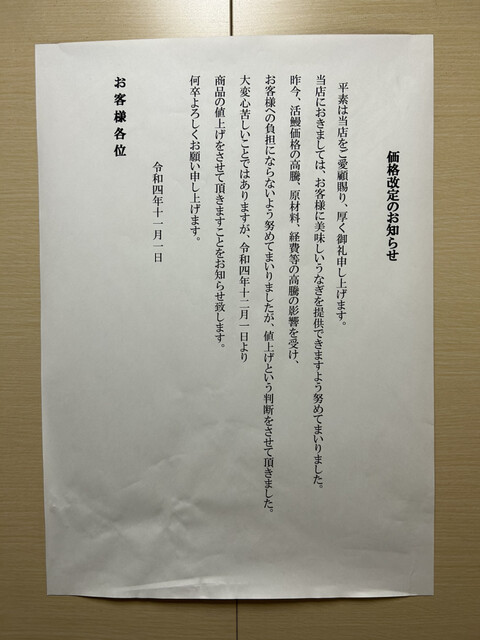 価格改定のお知らせ
平素は当店をご愛顧賜り、厚く御礼申し上げます。
当店におきましては、お客様に美味しいうなぎを提供できますよう努めてまいりました。
昨今、活鰻価格の高騰、原材料、経費等の高騰の影響を受け、
お客様への負担にならないよう努めてまいりましたが、値上げという判断をさせて頂きました。
大変心苦しいことではありますが、令和四年十二月一日より
商品の値上げをさせて頂きますことをお知らせ致します。
何卒よろしくお願い申し上げます。
令和四年十一月一日
お客様各位